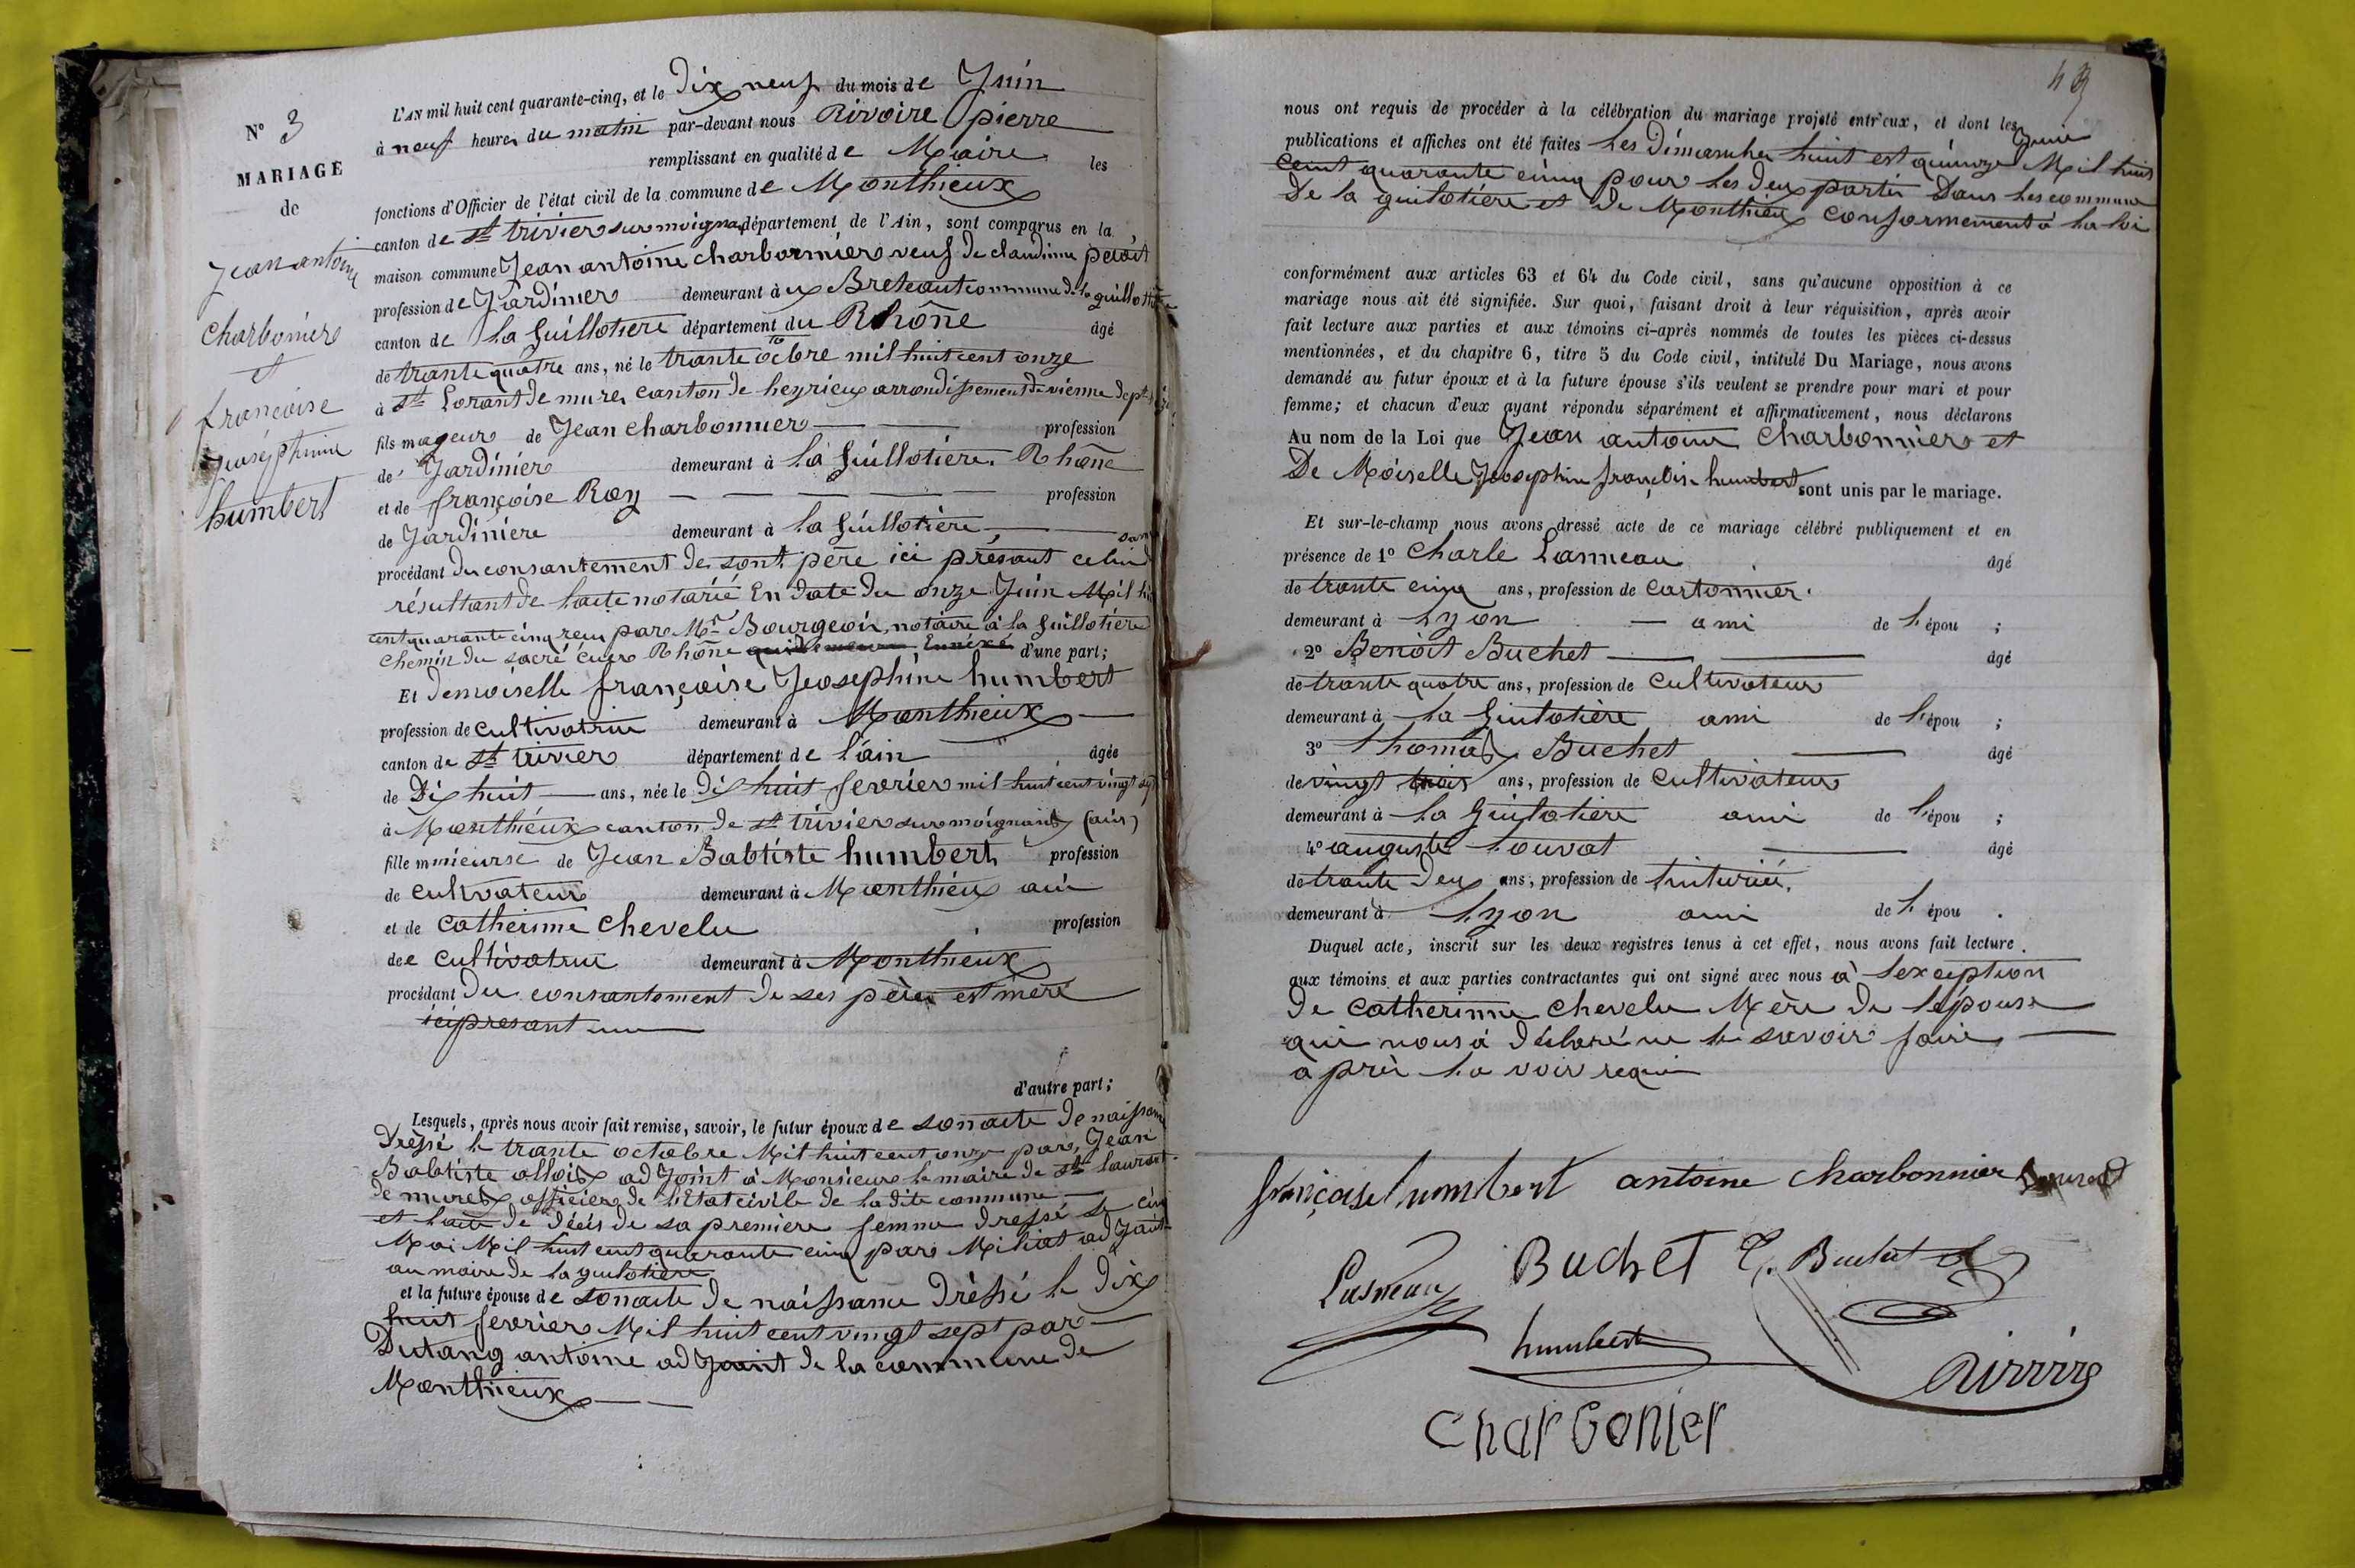 N° 3
MARIAGE
de
Jean antoine
charbonier
et
françoise
Joséphine
humbert
L'AN mil huit cent quarante-cinq, et le Dix neuf du mois de Juin
à neuf heures du matin par-devant nous Rivoire pierre
remplissant en qualité de Maire les
fonctions d'Officier de l'état civil de la commune de Monthieux
canton de St trivier sur moignan département de l'Ain, sont comparus en la
maison commune Jean antoine charbonnier veuf de claudine
profession de Jardinier demeurant à ux Breteaut commune de la guillotière
canton de la Guillotière département du Rhône âgé
de trante quatre ans, né le trante octbre mil huit cent onze
à St Lorant de mures canton de heyrieux arrondissement de vienne dept
fils mageur de Jean charbonnier profession
de Jardinier demeurant à la Guillotière. Rhône
et de françoise Roy profession
de Jardinière demeurant à la Guillotière
procédant du consantement de sont père ici présant celui
résultant de lacte notarié En date du onze Juin Mil
cent quarante cinq reçu par Mr Bourgeois, notaire à la Guillotière
chemin du sacré cuer Rhône d'une part;
Et demoiselle françoise Jeosephine humbert
profession de cultivatrice demeurant à Monthieux
canton de St trivier département de l'ain âgée
de Dix huit ans, née le dix huit fevrier mil huit cent vingt sept
à Monthieux canton de st trivier sur moignans (ain)
fille mineurse de Jean Babtiste humbert profession
de cultivateur demeurant à Monthieux ain
et de catherinne chevelu profession
dee cultivatrice demeurant à Monthieux
procédant du consantement de ses père est mère
ici presant
d'autre part;
Lesquels, après nous avoir fait remise, savoir, le futur époux de son acte de naissance
Dressé le trante octobre Mil huit cent onze par, Jean
Babtiste allois ad Joint à Monsieur le maire de St laurant
de mures officier de l'Etat civile de la dite commune
et lacte de décés de sa première femme dressé le cinq
Mai Mil huit cent quarante cinq par Miliat ad Joint
au maire de la guilotière
et la future épouse de son acte de naissance Dréssé le dix
huit fevrier Mil huit cent vingt sept par
Dutang antoine ad Joint de la commune de
Monthieux
nous ont requis de procéder à la célébration du mariage projeté entr'eux, et dont les
publications et affiches ont été faites Les Dimanches huit est quinze Juin Mil huit
cent quarante cinq pour les deux partis Dans les commune
De la guilotière et de Monthieux conformement à la loi
conformément aux articles 63 et 64 du Code civil, sans qu'aucune opposition à ce
mariage nous ait été signifiée. Sur quoi, faisant droit à leur réquisition, après avoir
fait lecture aux parties et aux témoins ci-après nommés de toutes les pièces ci-dessus
mentionnées, et du chapitre 6, titre 5 du Code civil, intitulé Du Mariage, nous avons
demandé au futur époux et à la future épouse s'ils veulent se prendre pour mari et pour
femme; et chacun d'eux ayant répondu séparément et affirmativement, nous déclarons
Au nom de la Loi que Jean antoine Charbonnier et
De Moiselle Jeosephine françoise humbert sont unis par le mariage.
Et sur-le-champ nous avons dressé acte de ce mariage célébré publiquement et en
présence de 1° Charle Lanneau âgé
de trante cinq ans, profession de cartonnier.
demeurant à Lyon ami de l'épou ;
2° Benoît Buchet âgé
de trante quatre ans, profession de cultivateur
demeurant à La Guilotière ami de l'épou ;
3° thomas Buchet âgé
de vingt trois ans, profession de cultivateur
demeurant à La Guilotière ami de l'épou ;
4° auguste Louvat âgé
de trante deux ans, profession de
demeurant à Lyon ami de l'épou .
Duquel acte, inscrit sur les deux registres tenus à cet effet, nous avons fait lecture
aux témoins et aux parties contractantes qui ont signé avec nous à lexception
De catherinne chevelu Mère de lépouse
qui nous à déclaré ne le savoir faire
a près la voir requi
françoise humbert antoine charbonnier
Lasneau Buchet
humbert
charbonier